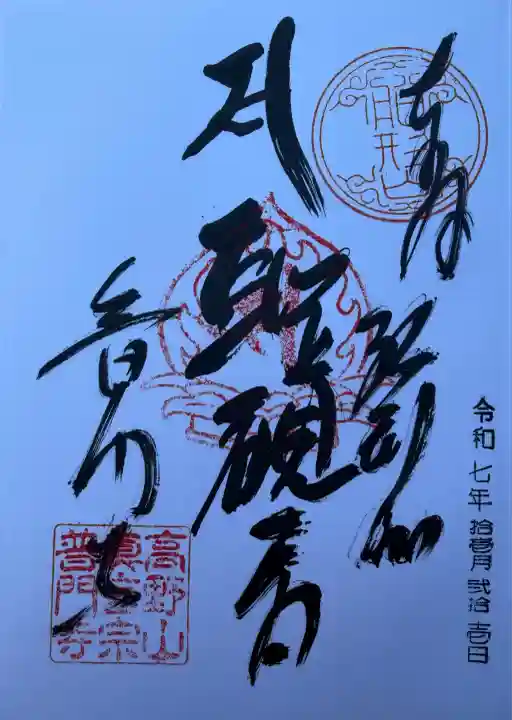 奉拝
令和七年 拾壱月 弐拾壱日
聖観音
普門寺
高野山
真言宗
普門寺